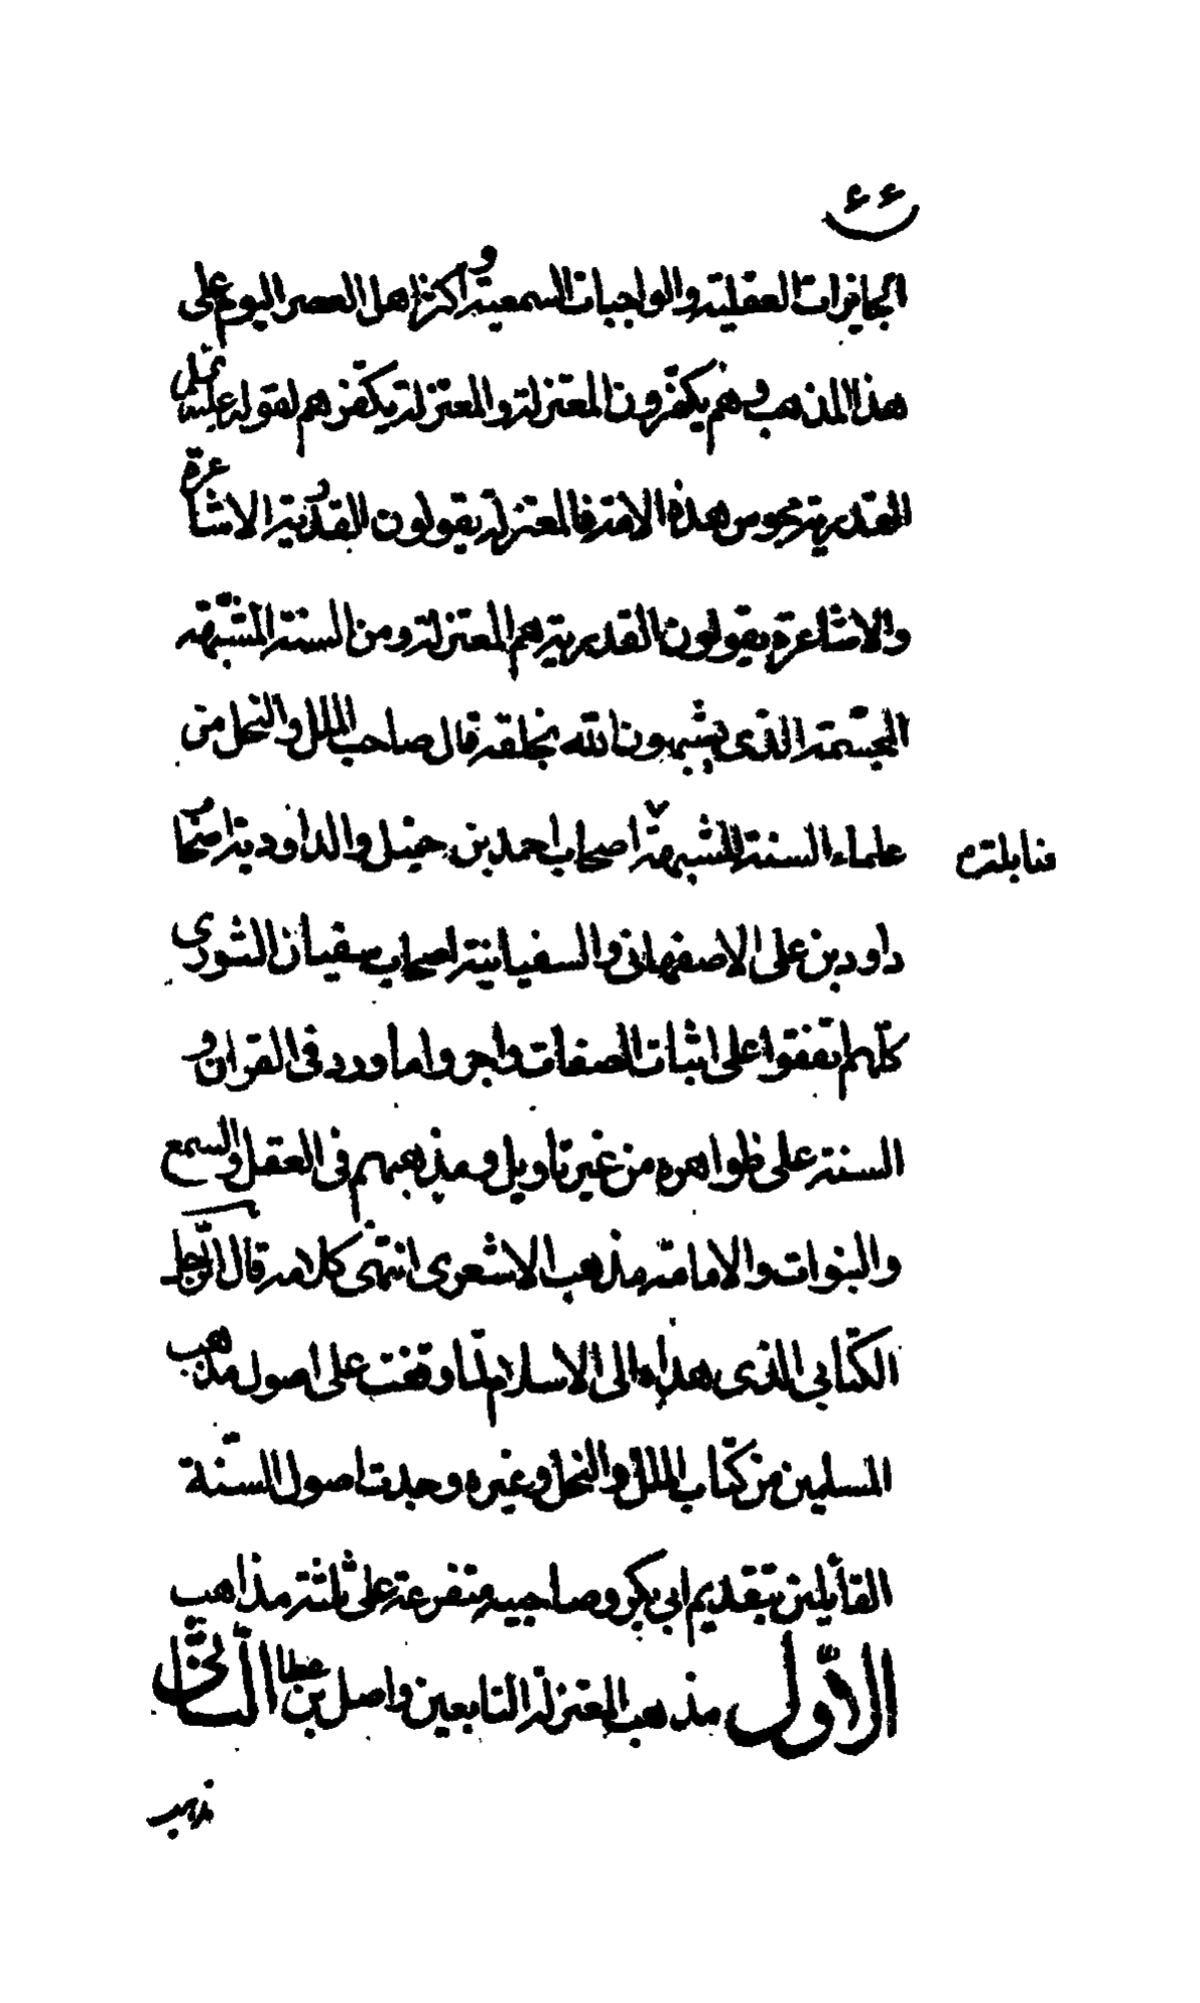 ٤٤
الجايزات العقلية والواجبات السمعية و اكثر اهل العصر اليوم على
هذا المذهب وهم يكفّرون المعتزلة والمعتزلة يكفّرهم لقوله عليه
القدرية مجوس هذه الامة فالمعتزلة يقولون القدرية الاشاعرة
والاشاعرة يقولون القدرية هم المعتزلة ومن السنة المشبّهة
المجسّمة الذى يشبهون الله بخلقه قال صاحب الملل والنحل من
علماء السنة المشبهة اصحاب احمد بن حنبل والداودية اصحاب
حنابلة
داود بن على الاصفهانى والسفيانية اصحاب سفيان الثورى
كلّهم اتفقوا على اثبات الصفات واجروا ما ورد فى القران و
السنة على ظواهره من غير تاويل ومذهبهم فى العقل والسمع
والنبوات والامامة مذهب الاشعرى انتهى كلامه قال الرّجل
الكتابى الذى هداه الى الاسلام لمّا وقفت على اصول مذهب
المسلمين من كتاب الملل والنحل وغيره وجدت اصول السنّة
القائلين بتقديم ابى بكر وصاحبيه متفرعة على ثلثة مذاهب
الاوّل مذهب المعتزلة التابعين واصل بن عطا الثانى
مذهب